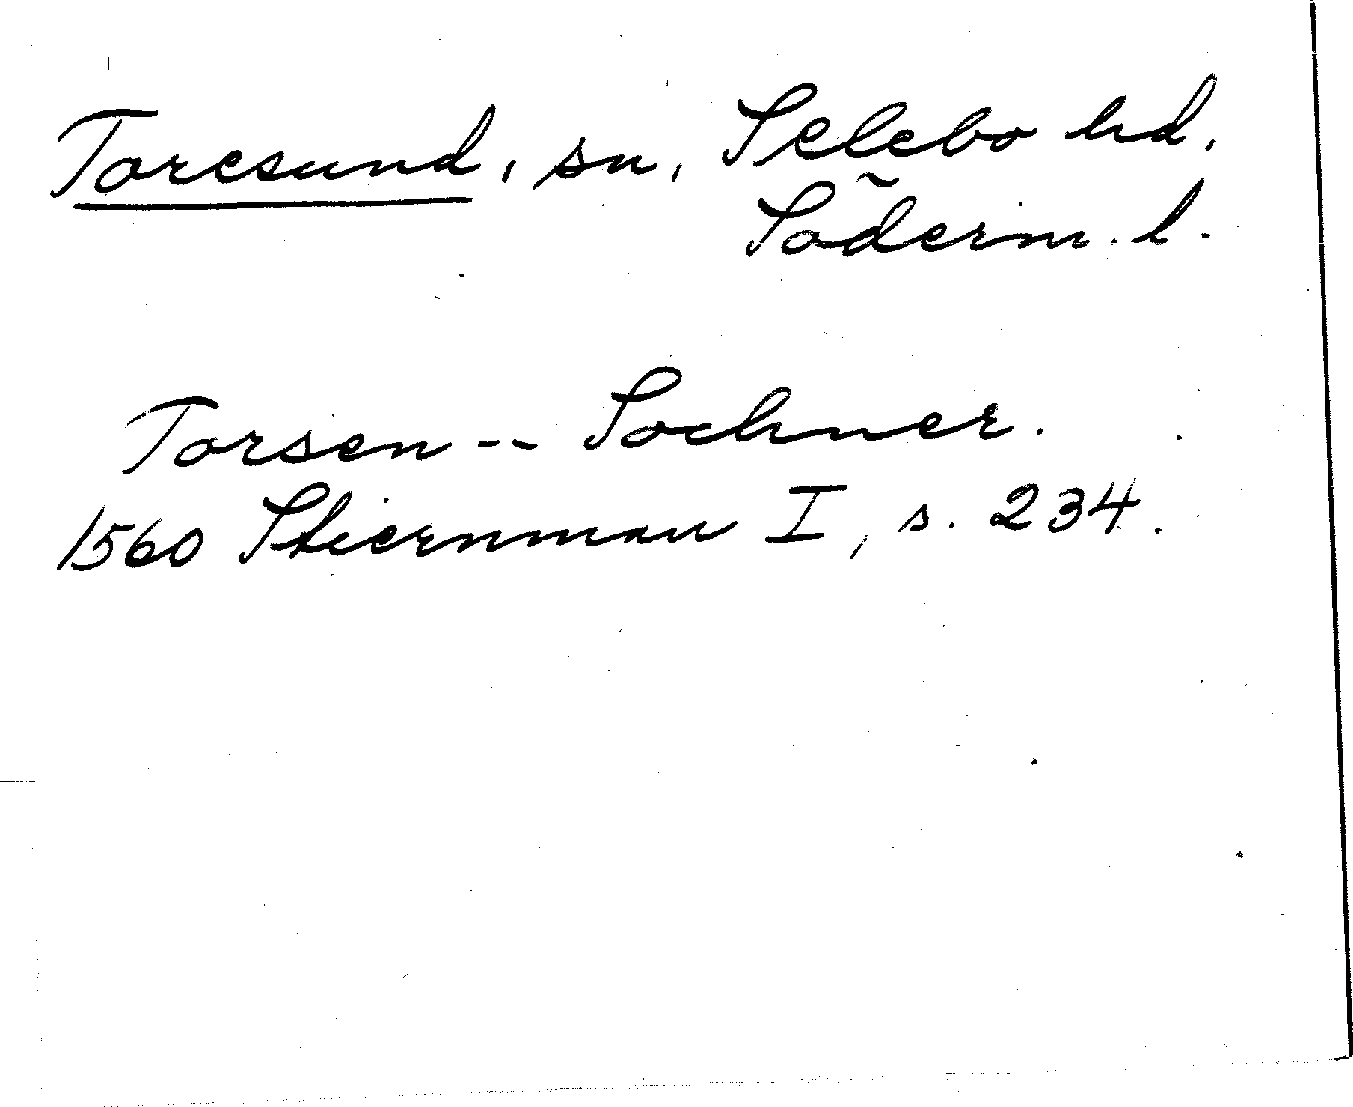 Toresund, sn, Selebo hd.
Söderm. l.
Torsen -- Sochner.
1560 Stiernman I, s. 234.